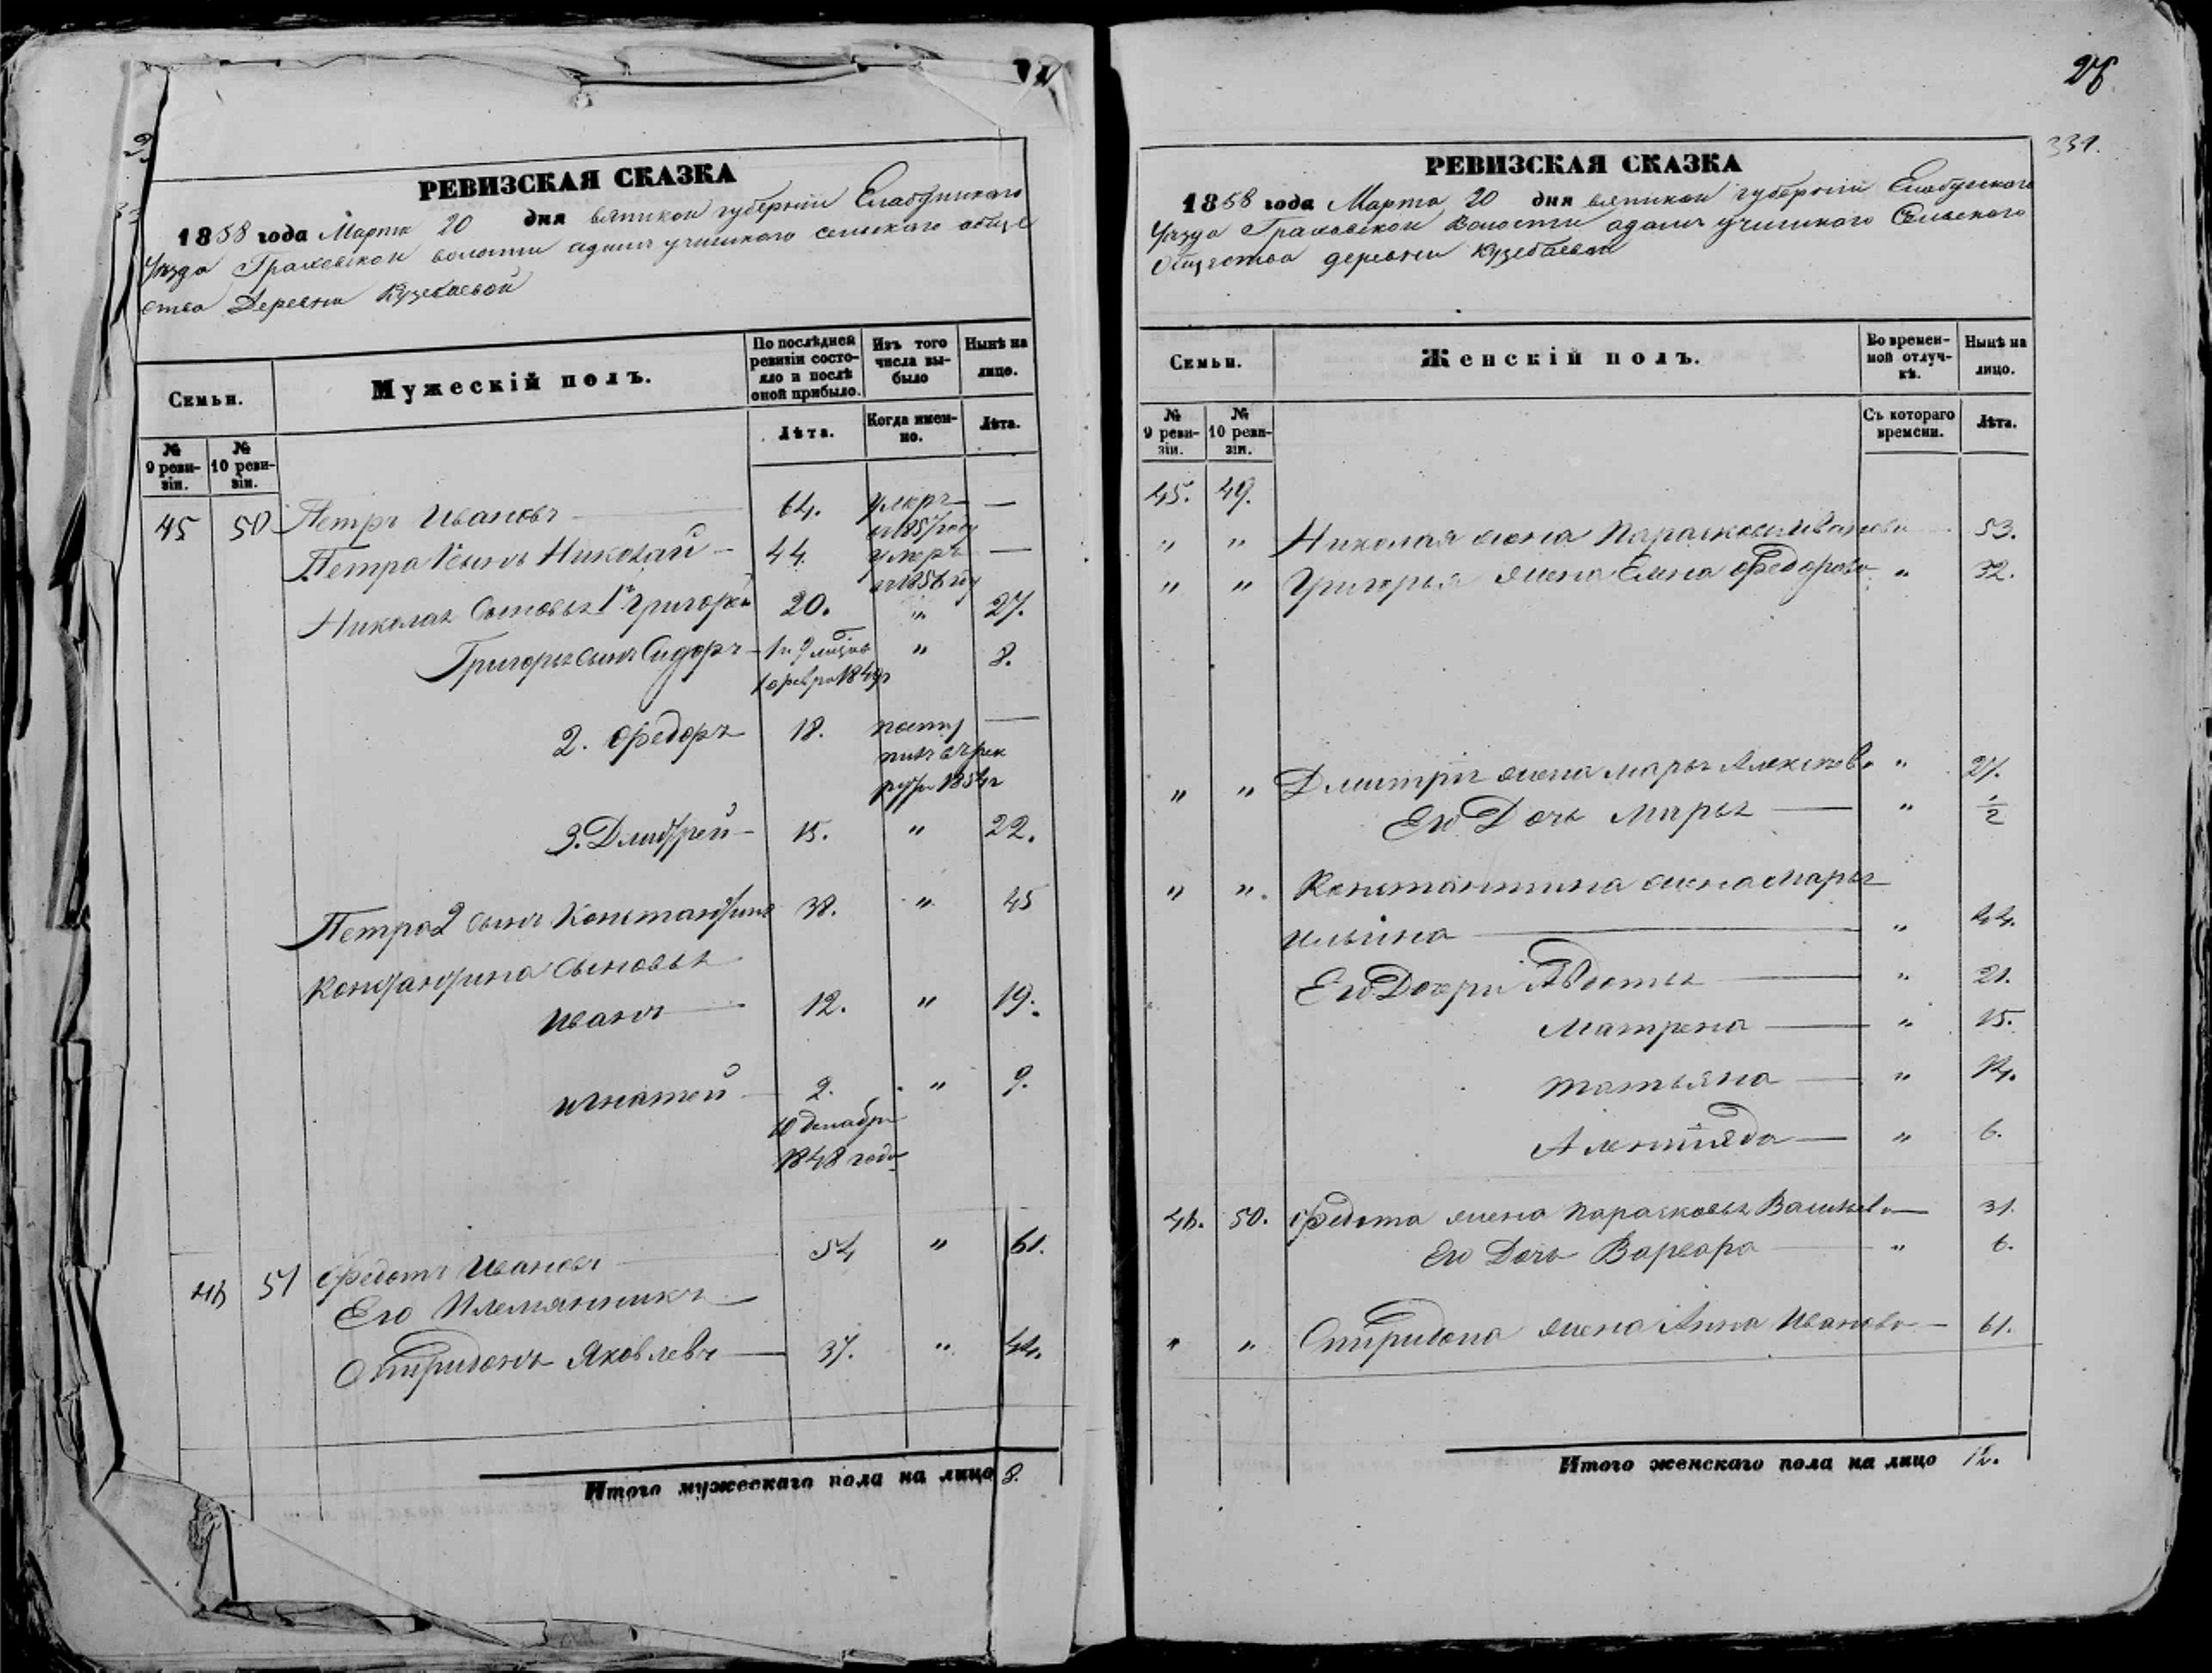 РЕВИЗСКАЯ СКАЗКА
1858 года Марта 20 дня вятской губернии Елабужского
Уезда Граховской волости адамъ учинского сельского обще
ства Деревни Кузебаевой
Семьи.
Мужескій полъ.
По послѣдней ревизіи состояло и послѣ оной прибыло.
Изъ того числа выбыло
Нынѣ на лицо.
№ 9 ревизіи.
№ 10 ревизіи.
Лѣта.
Когда именно.
Лѣта.
45 50 Петръ Ивановъ 64. умеръ —
в 1857 году
Петра 1 сынъ Николай — 44. умеръ —
в 1856 году
Николая Сыновья 1й Григорей 20. " 27.
Григорья сынъ Сидоръ — 1 " 8.
1 февра 1849г
2. Федоръ 18. посту —
пилъ въ рек
руты 1854г
3. Дмитрей — 15. " 22.
Петра 2 сынъ Константинъ 38. " 45
Константина Сыновья
Иванъ — 12. " 19.
Игнатей — 2. " 9.
10 декабря
1848 года
46 51 Федотъ Ивановъ 54 " 61.
Его Племянникъ —
Спиридонъ Яковлевъ — 37. " 44.
Итого мужескаго пола на лицо 8.
26
331.
РЕВИЗСКАЯ СКАЗКА
1858 года Марта 20 дня вятской губернии Елабужского
Уезда Граховской Волости адамъ учинского Сельского
Общества деревни Кузебаевой
Семьи.
Женскій полъ.
Во временной отлучкѣ.
Нынѣ на лицо.
№ 9 ревизіи.
№ 10 ревизіи.
Съ котораго времени.
Лѣта.
45. 49.
" " Николая жена Парасковья Иванова — 53.
" " Григорья жена Елена Федорова " 32.
" " Дмитрія жена Марья Алексеев. " 27.
Его Дочь Марья — " 1/2
" " Константина жена Марья
Ильина — " 44.
Его Дочери Авдотья — " 21.
Матрена — " 15.
Татьяна — " 14.
— " 6.
46. 50. Федота жена Парасковья Васильева — 31.
Его Дочь Варвара — " 6.
" " Спиридона жена Анна Иванова — 61.
Итого женскаго пола на лицо 12.